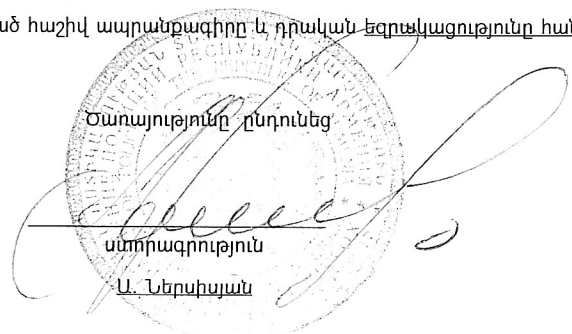 ած հաշիվ ապրանքագիրը և դրական եզրակացությունը հան
Ծառայությունը ընդունեց
ստորագրություն
Ա. Ներսիսյան